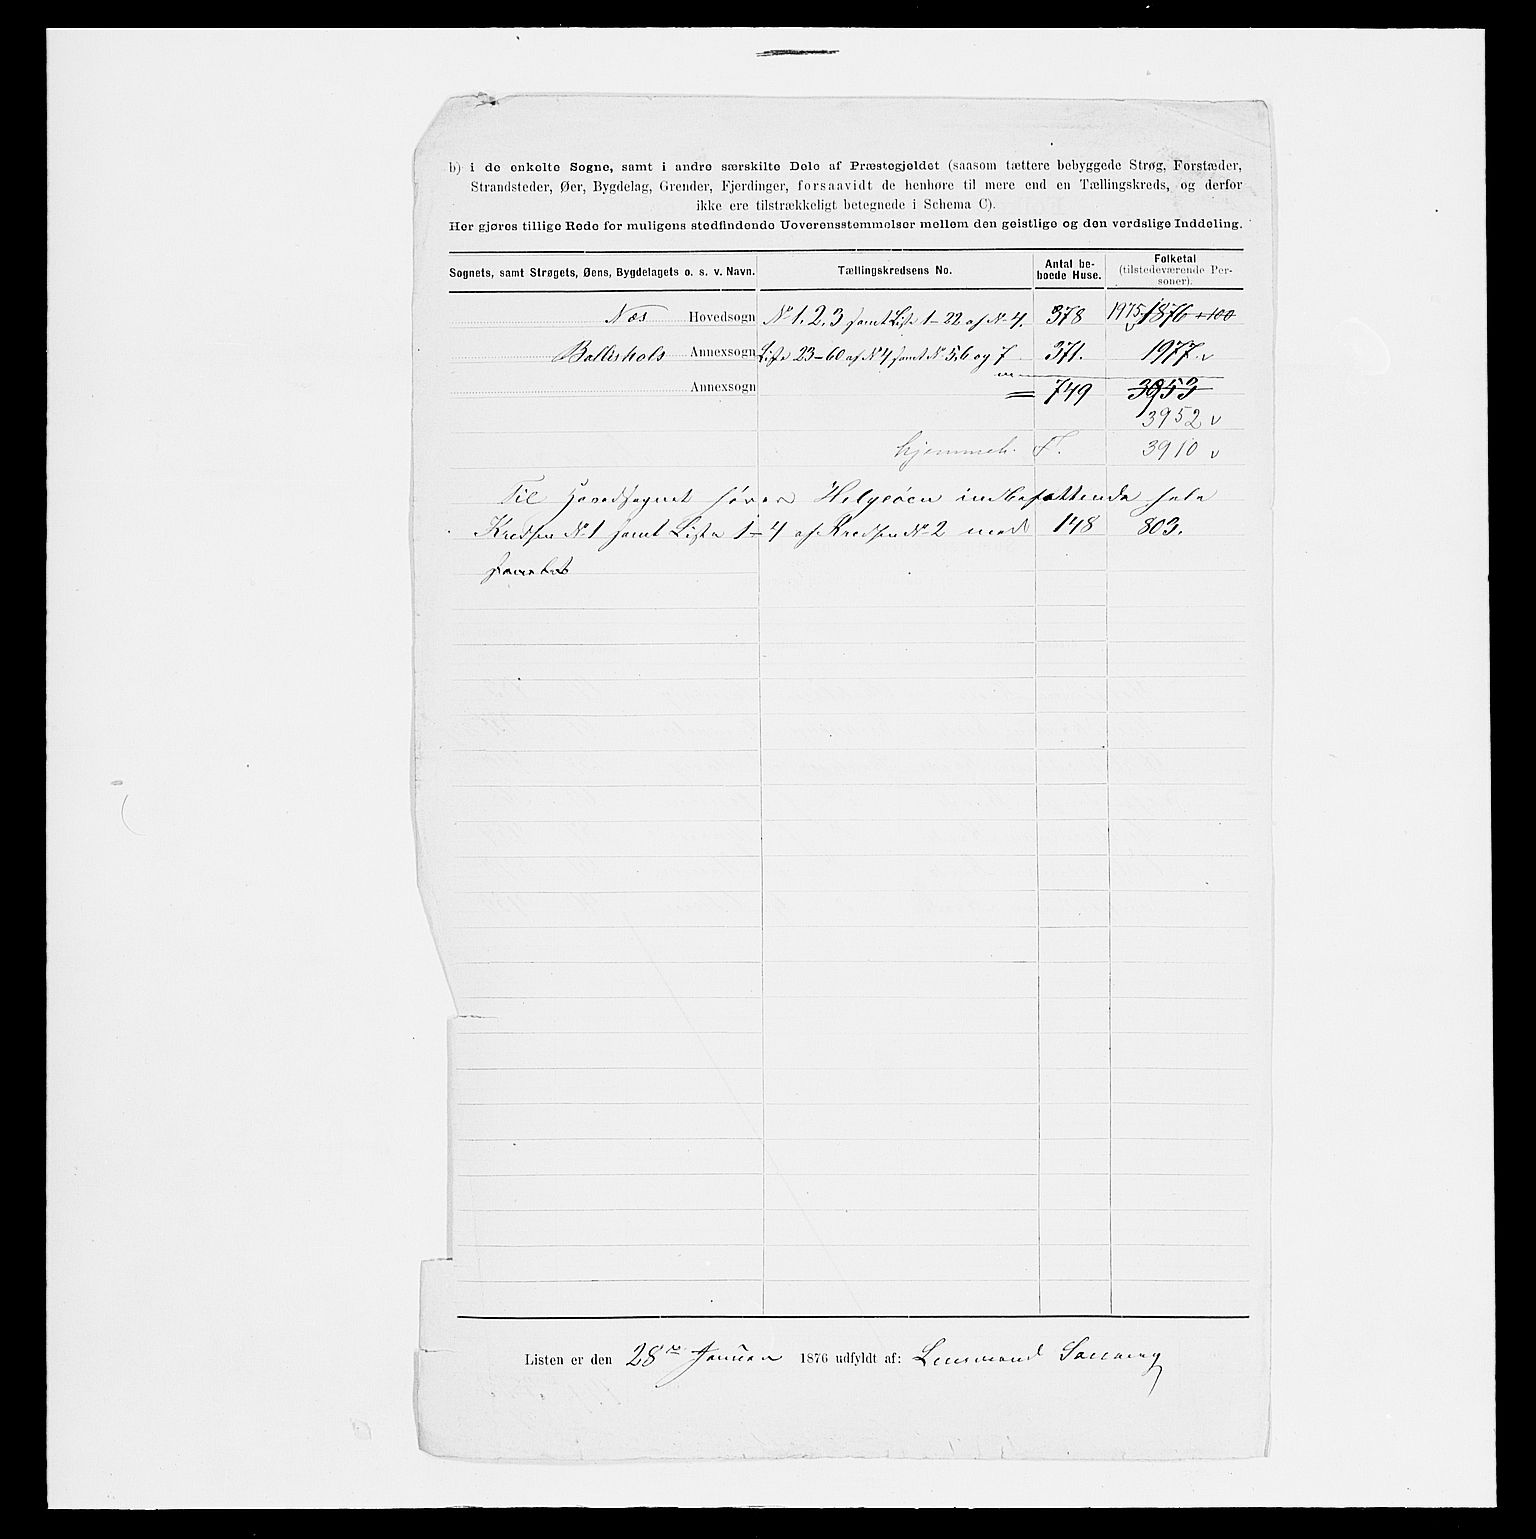 b) i de enkelte Sogne, samt i andre særskilte Dele af Præstegjeldet (saasom tættere bebyggede Strøg, Forstæder,
Strandsteder, Øer, Bygdelag, Grender, Fjerdinger, forsaavidt de henhøre til mere end en Tællingskreds, og derfor
ikke ere tilstrækkeligt betegnede i Schema C).
Her gjøres tillige Rede for muligens stedfindende Uoverensstemmelser mellem den geistlige og den verdslige Inddeling.
Sognets, samt Strøgets, Øens, Bygdelagets o. s. v. Navn. Tællingskredsens No. Antal beboede Huse. Folketal (tilstedeværende Personer).
Næs Hovedsogn No 1. 2. 3 samt Liste 1-22 af No 4. 378 1975 1876 +100
Ballishols Annexsogn Liste 23-60 af No 4 samt No 5.6 og 7 371. 1977 v
Annexsogn = 749 3953
3952 v
hjemmeh. F. 3910 v
Til Hovedsognet hører Helgeöen indbefattende hele
Kredsen No 1 samt Liste 1-4 af Kredsen No 2 med 148 803.
Listen er den 28de Januar 1876 udfyldt af: Lensmand